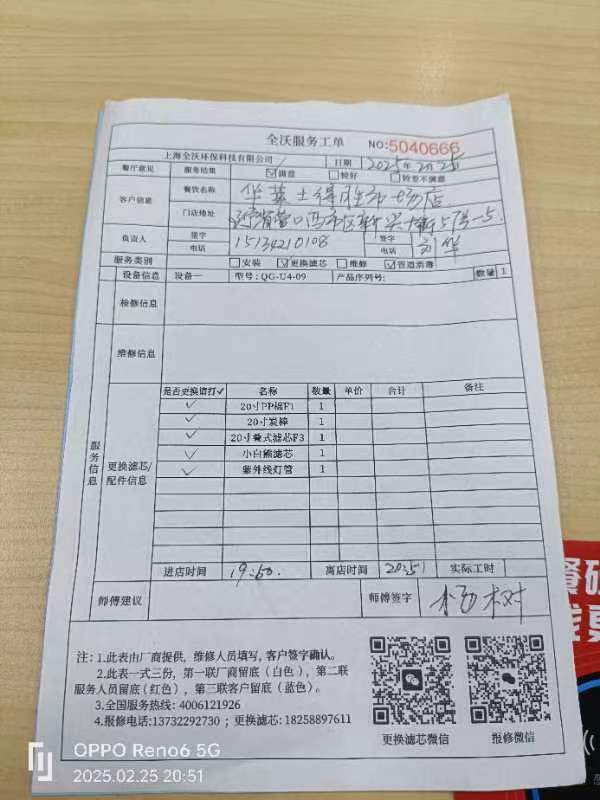 全沃服务工单 NO:5040666
上海全沃环保科技有限公司 日期 2025年2月25
餐厅意见 服务结果 ☑满意 □待好 □待查不满意
客户信息 餐饮名称 华莱士得胜市场店
门店地址 辽宁省营口西市区新兴大街57号-5
负责人 签字 签字
电话 15134210108 电话
服务类别 □安装 ☑更换滤芯 □维修 ☑管道消毒
设备信息 设备一 型号:QG-U4-09 产品序列号: 数量 1
检修信息
维修信息
服务信息
更换滤芯/配件信息
是否更换请打√ 名称 数量 单价 合计 备注
√ 20寸PP棉F1 1
√ 20寸炭棒 1
√ 20寸叠式滤芯F3 1
√ 小白熊滤芯 1
√ 紫外线灯管 1
进店时间 19:50. 离店时间 20:51 实际工时
师傅建议 师傅签字 杨树
注:1.此表由厂商提供,维修人员填写,客户签字确认。
2.此表一式三份,第一联厂商留底(白色),第二联
服务人员留底(红色),第三联客户留底(蓝色)。
3.全国服务热线:4006121926
4.报修电话:13732292730;更换滤芯:18258897611
更换滤芯微信 报修微信
OPPO Reno6 5G
2025.02.25 20:51